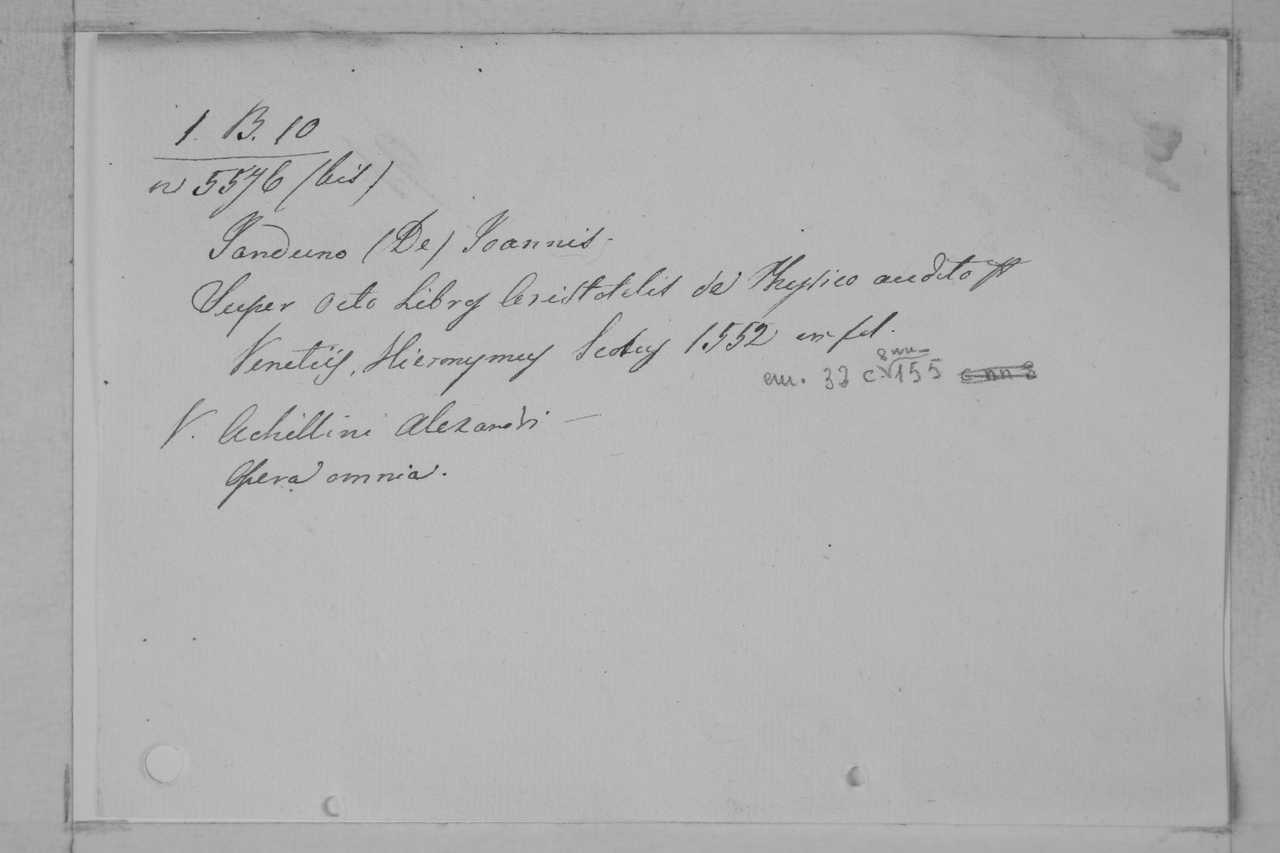 1. B. 10
n 5576 (bis)
Janduno (De) Joannis.
Super octo Libros Aristotelis de Physico auditu
Venetiis, Hieronymus Scotus 1552 in fol.
cm. 33 c. 8 nn. 155
V. Achillini Alexandri —
Opera omnia.